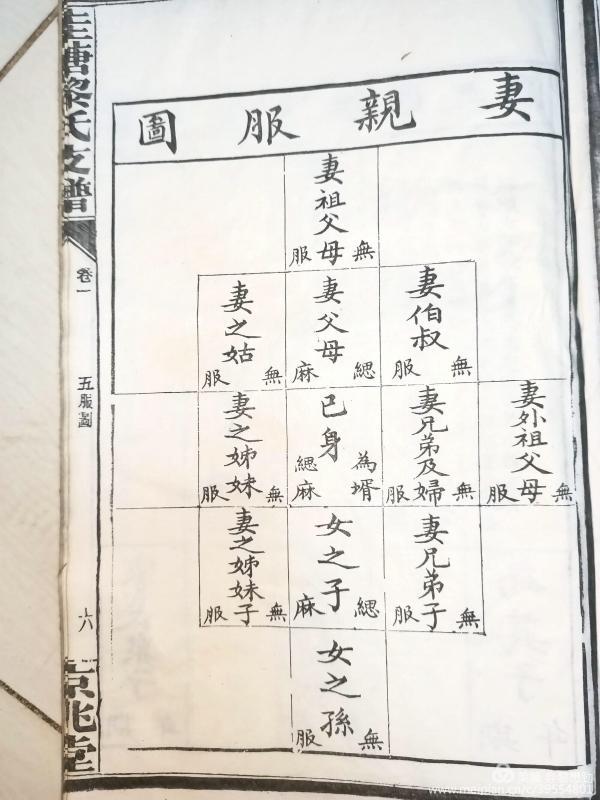 妻親服圖
妻祖父母
無服
妻伯叔
無服
妻父母
緦麻
妻之姑
無服
妻外祖父母
無服
妻兄弟及婦
無服
已身
為壻緦麻
妻之姊妹
無服
妻兄弟子
無服
女之子
緦麻
妻之姊妹子
無服
女之孫
無服
塘黎氏支譜
卷一
五服圖
六
京兆堂
美篇
www.meipian.cn/c/39554801